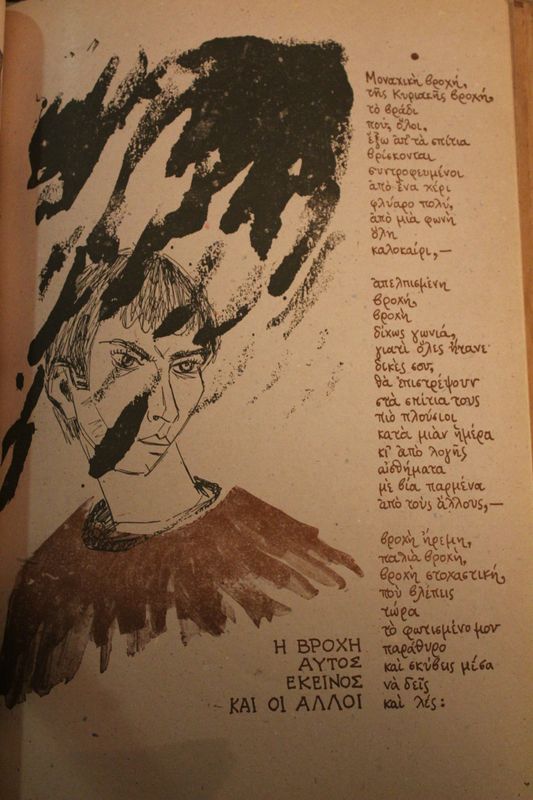 Μοναχικὴ βροχή,
τῆς Κυριακῆς βροχή,
τὸ βράδι
ποὺ, ὅλοι,
ἔξω ἀπ' τὰ σπίτια
βρίσκονται
συντροφευμένοι
ἀπὸ ἕνα κέρι
φλύαρο πολύ,
ἀπὸ μιὰ φωνὴ
ὅλη
καλοκαίρι, —
ἀπελπισμένη
βροχή,
βροχὴ
δίχως γωνιά,
γιατὶ ὅλες ἤτανε
δικές σου,
θὰ ἐπιστρέψουν
στὰ σπίτια τους
πιὸ πλούσιοι
κατὰ μιὰν ἡμέρα
κι' ἀπὸ λογῆς
αἰσθήματα
μὲ βία παρμένα
ἀπὸ τοὺς ἄλλους, —
βροχὴ ἤρεμη,
παλιὰ βροχή,
βροχὴ στοχαστική,
ποὺ βλέπεις
τώρα
τὸ φωτισμένο μου
παράθυρο
καὶ σκύβεις μέσα
νὰ δεῖς
καὶ λές:
Η ΒΡΟΧΗ
ΑΥΤΟΣ
ΕΚΕΙΝΟΣ
ΚΑΙ ΟΙ ΑΛΛΟΙ